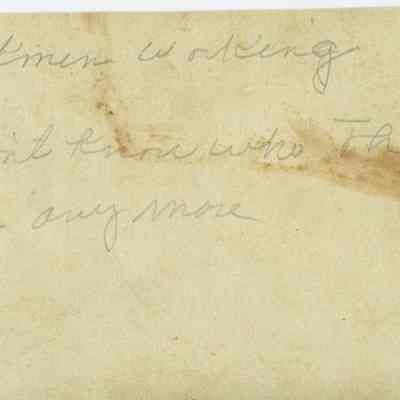 kmen working
n't know who Th
any more